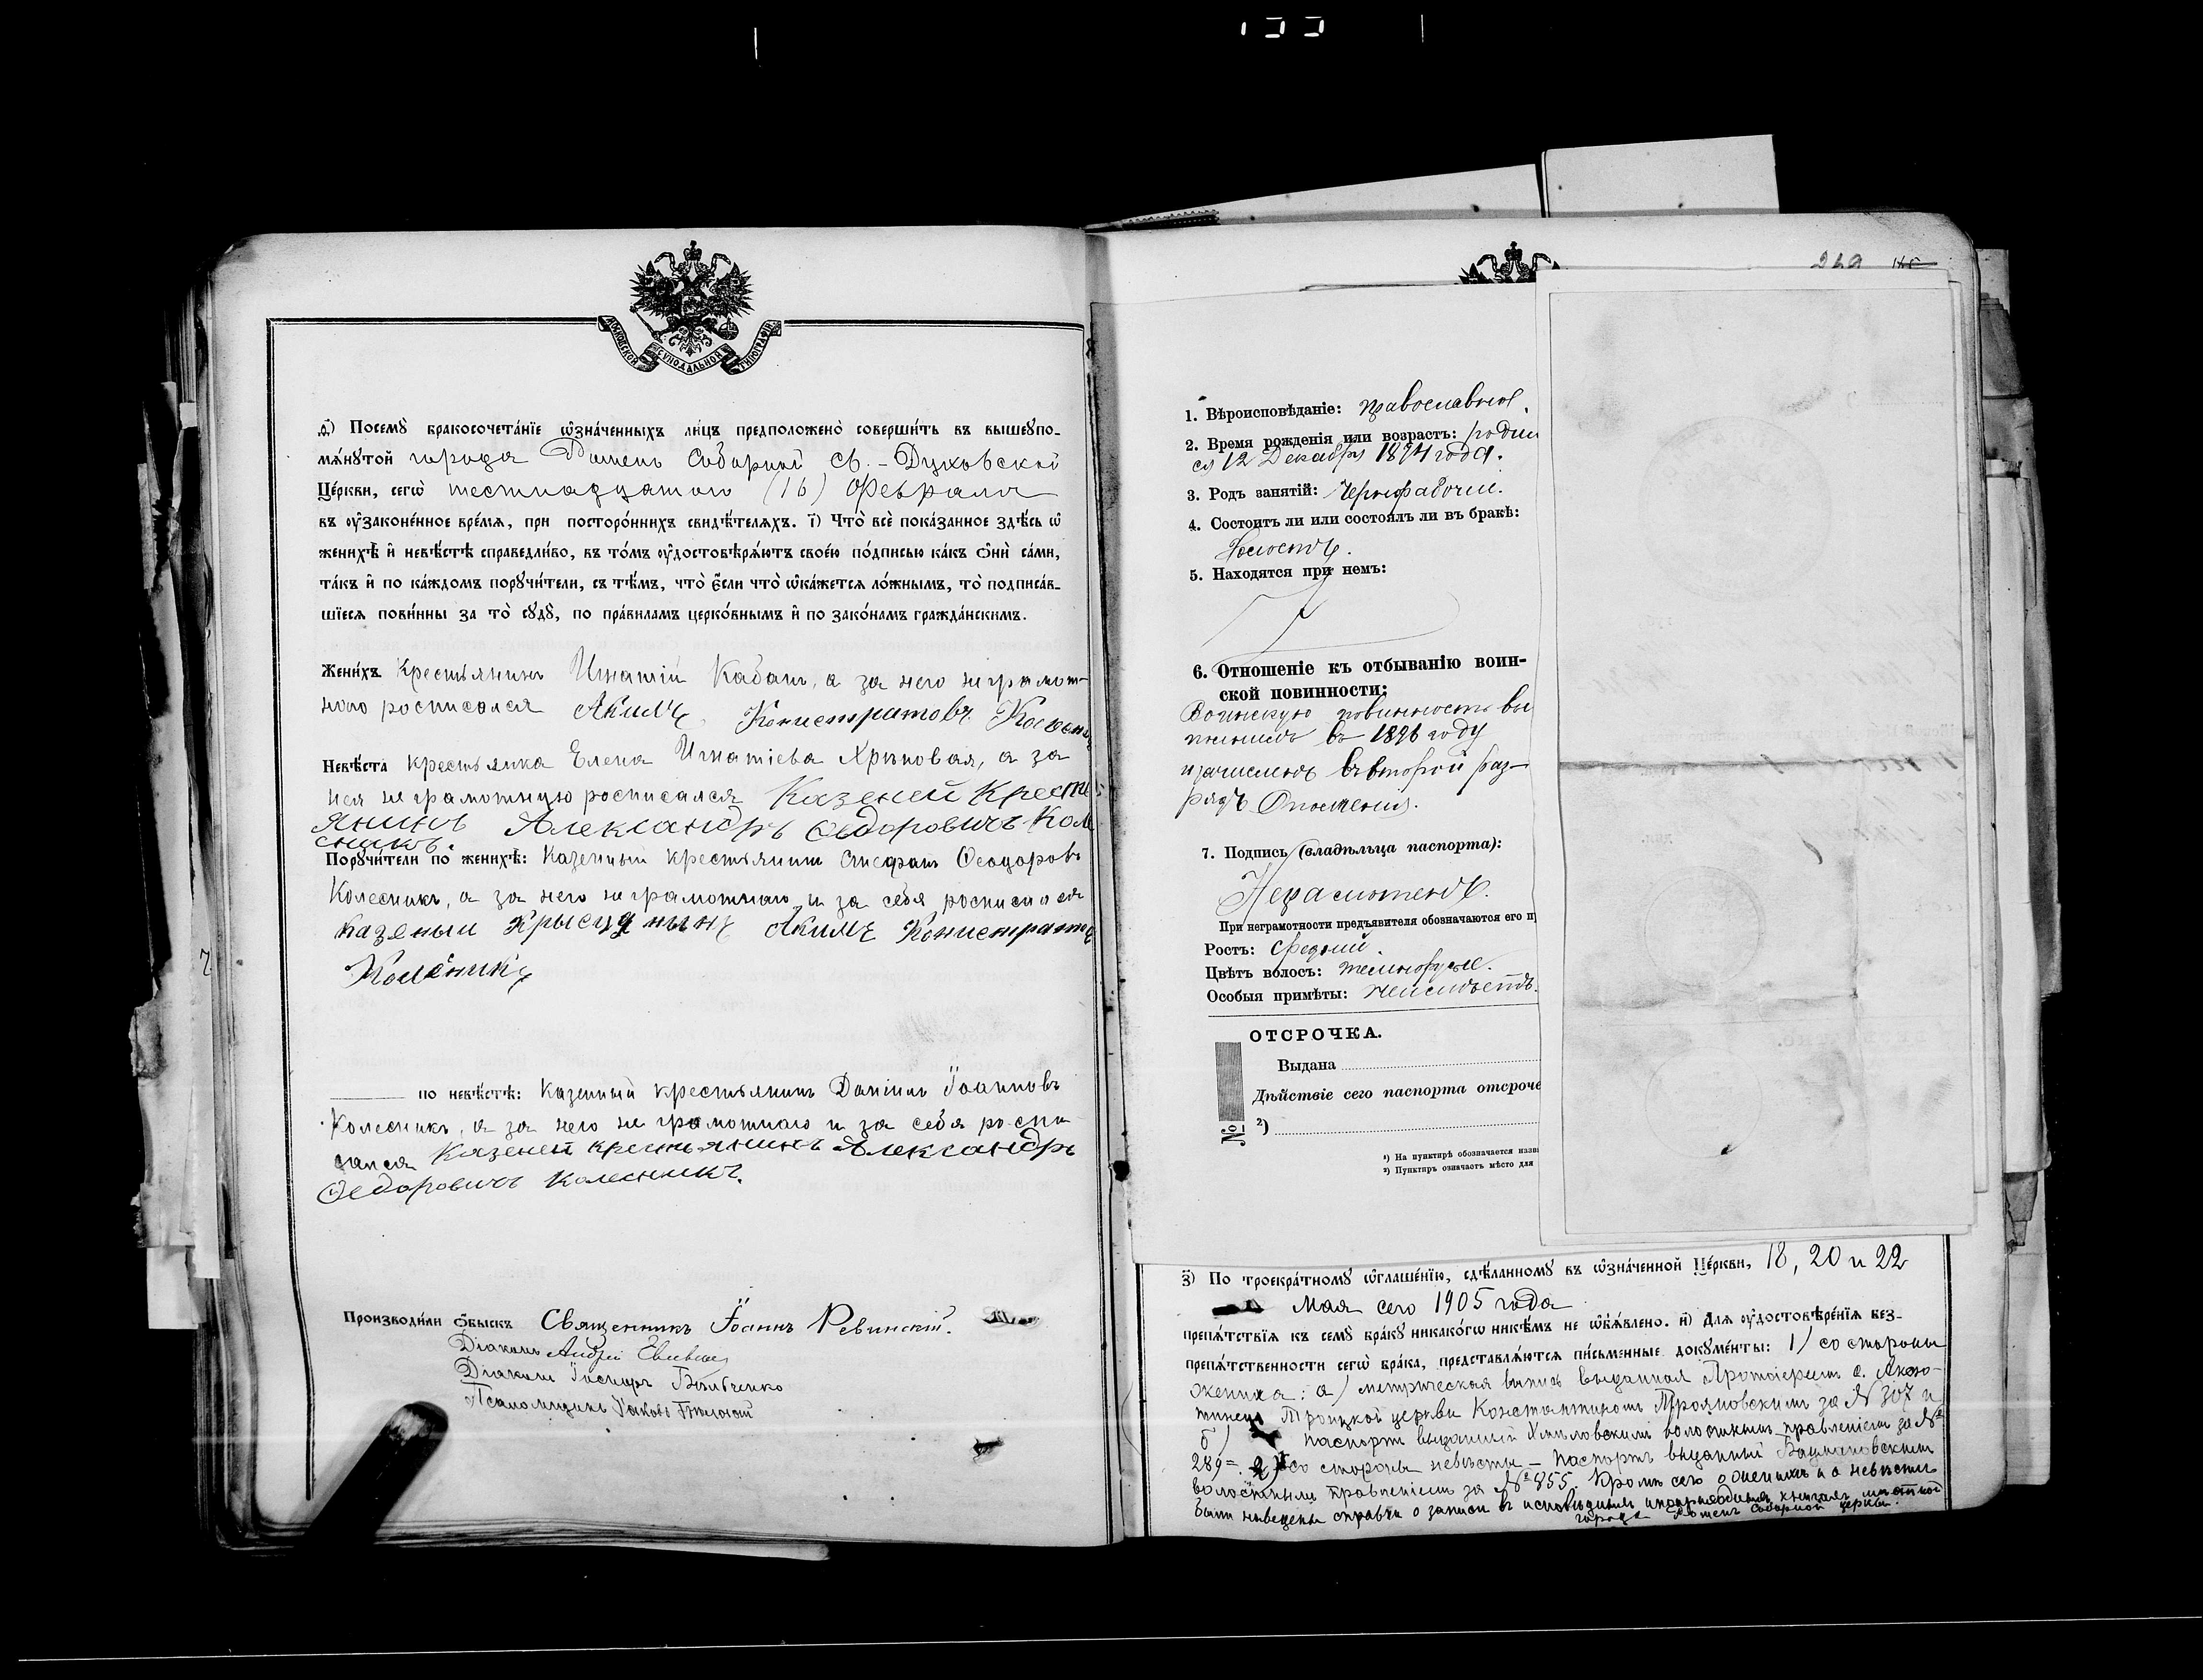 МОСКОВСКОЙ СѴНОДАЛЬНОЙ ТИПОГРАФІИ
ѳ҃) Посемꙋ бракосочета́нїе ѡ҆зна́ченныхъ ли́цъ предположено̀ соверши́ть въ вышеꙋпо-
мѧ́нꙋтой города Ромень Соборной Св.-Духовской
Це́ркви, сегѡ̀ шестнадцатаго (16) Февраля
въ ᲂу҆законе́нное вре́мѧ, при посторо́ннихъ свидѣ́телѧхъ. і҃) Что̀ всѐ пока́занное здѣ́сь ѡ҆
женихѣ̀ и҆ невѣ́стѣ справедли́во, въ то́мъ ᲂу҆достовѣрѧ́ютъ свое́ю по́дписью ка́къ ѻ҆нѝ са́ми,
та́къ и҆ по ка́ждомъ порꙋчи́тели, съ тѣ́мъ, что̀ є҆́сли что̀ ѡ҆ка́жетсѧ ло́жнымъ, то̀ подписа́в-
шїесѧ пови́нны за то̀ сꙋдꙋ̀, по пра́виламъ церко́внымъ и҆ по зако́намъ гражда́нскимъ.
Жени́хъ Крестьянинъ Игнатій Кабанъ, а за него неграмот-
ного росписался Акимъ Конистратовъ
Невѣ́ста крестьянка Елена Игнатіева Хрѣновая, а за
нея неграмотную росписался Казеней Кресть
янинъ Александръ Ѳедоровичъ Кол
сникъ.
Порꙋчи́тели по женихѣ̀: Казенный крестьянинъ Стефанъ Ѳеодоровъ
Колесникъ, а за него неграмотнаго и за себя росписался
казеныи Крысцянынъ Акимъ Конистратов
Колесникъ
по невѣ́стѣ: Казенный крестьянинъ Даніилъ Іоанновъ
Колесникъ, а за него не грамотнаго и за себя роспи-
сался Казеней крестьянинъ Александръ
Ѳедоровичъ Колесникъ.
Производи́ли ѻ҆́быскъ Священникъ Іоаннъ Ревинскій.
Діаконъ Андрей
Діаконъ
Псаломщикъ Яковъ
1. Вѣроисповѣданіе: православное.
2. Время рожденія или возрастъ: родил
ся 12 Декабря 1874 года.
3. Родъ занятій: Чернорабочій.
4. Состоитъ ли или состоялъ ли въ бракѣ:
Холостъ.
5. Находятся при немъ:
6. Отношеніе къ отбыванію воин-
ской повинности:
Воинскую повинность вы
полнилъ въ 1896 году
и зачисленъ въ второй раз-
рядъ Ополченія.
7. Подпись (владѣльца паспорта):
Неграмотенъ.
При неграмотности предъявителя обозначаются его п
Ростъ: средній.
Цвѣтъ волосъ: темнорусые.
Особыя примѣты: неимѣетъ.
ОТСРОЧКА.
Выдана
Дѣйствіе сего паспорта отсроче
№ ²)
¹) На пунктирѣ обозначается назв
²) Пунктиръ означаетъ мѣсто для
з҃) По троекра́тномꙋ ѡ҆глаше́нїю, сдѣ́ланномꙋ въ ѡ҆зна́ченной Це́ркви, 18, 20 и 22
Мая сего 1905 года
препѧ́тствїѧ къ семꙋ̀ бра́кꙋ никако́гѡ никѣ́мъ не ѡ҆б̾ѧ́влено. и҃) Длѧ ᲂу҆достовѣре́нїѧ без-
препѧ́тственности сегѡ̀ бра́ка, представлѧ́ютсѧ пи́сьменные докꙋме́нты: 1) со стороны
жениха: а) метрическая выпись выданная Протоіереемъ с.
Троицкой церкви Константиномъ Трояновскимъ за № 307 и
б) паспортъ выданный Хмѣловскимъ волостнымъ правленіемъ за №
289. 2) со стороны невѣсты – паспортъ выданный Бацмановскимъ
волостнымъ правленіемъ за № 855. Кромѣ сего о женихѣ и о невѣстѣ
были наведены справки о записи въ исповѣдныхъ и приходныхъ книгахъ мѣстной
города Роменъ Соборной церкви.